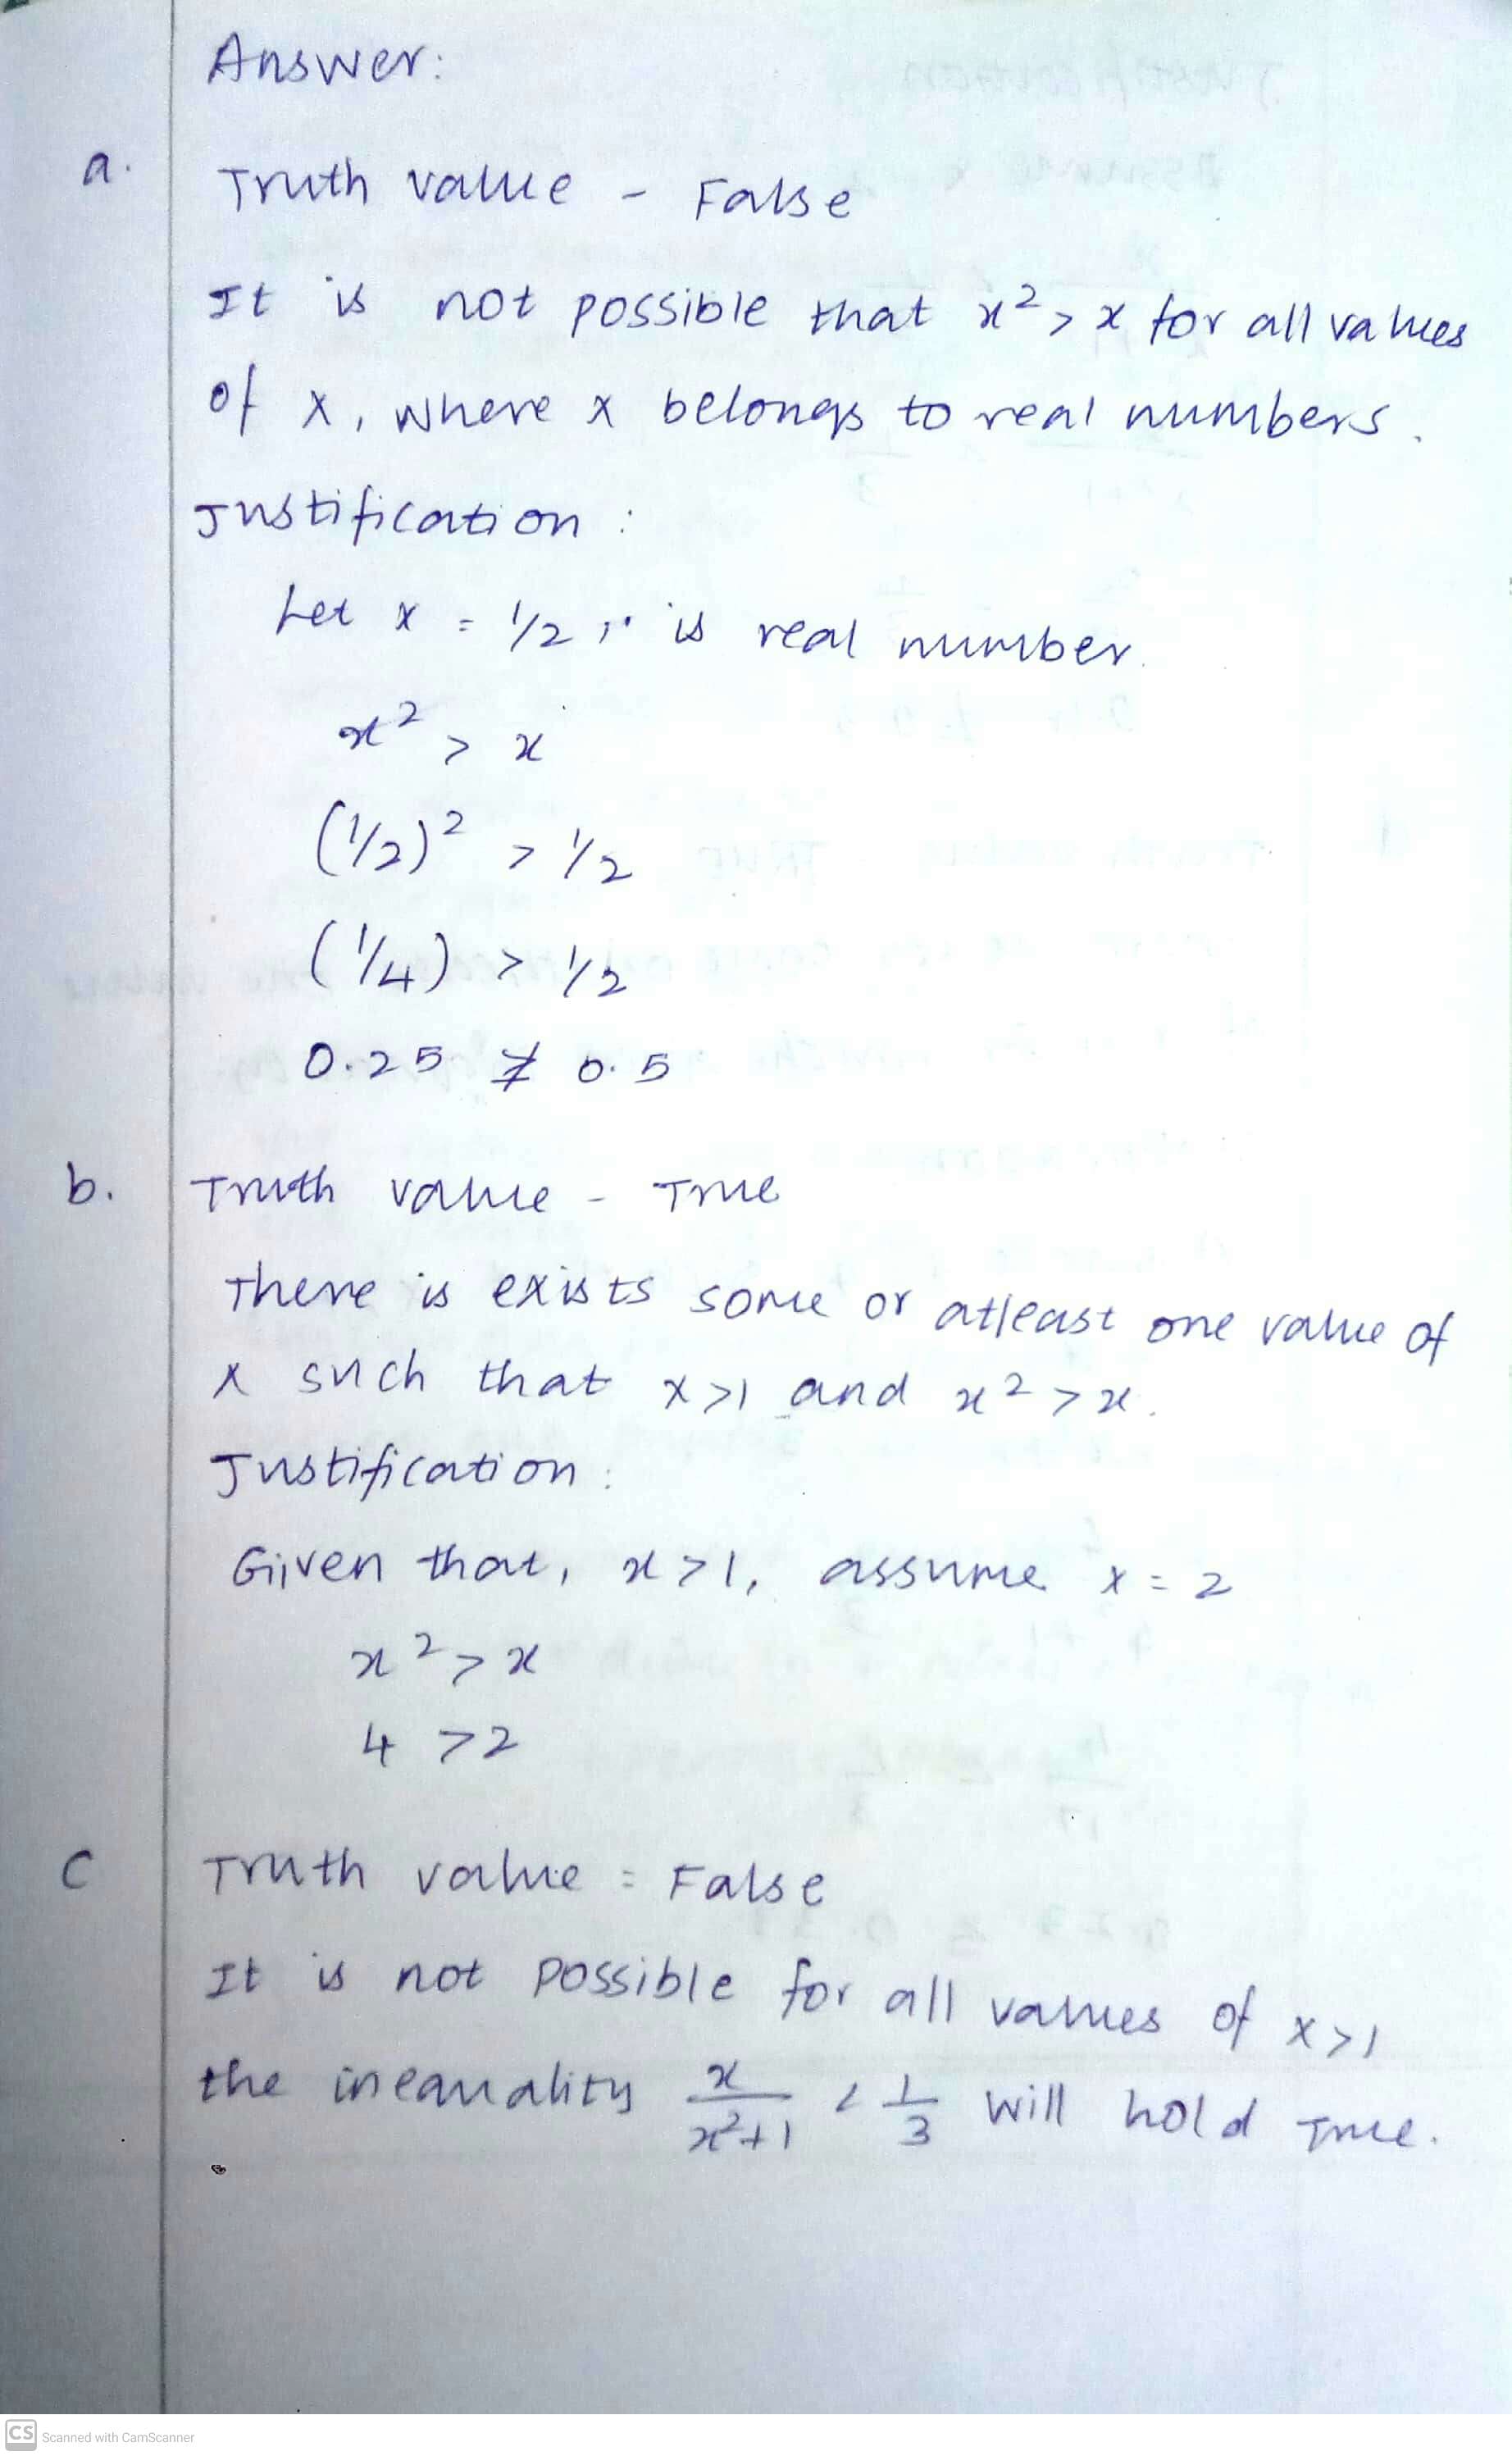 Answer:
a. Truth value - False
It is not possible that x² > x for all values
of x, where x belongs to real numbers.
Justification :
Let x = 1/2, is real number.
x² > x
(1/2)² > 1/2
(1/4) > 1/2
0.25 ≯ 0.5
b. Truth value - True
There is exists some or atleast one value of
x such that x>1 and x² > x.
Justification :
Given that, x>1, assume x = 2
x² > x
4 > 2
c Truth value = False
It is not possible for all values of x>1
the inequality x/x²+1 < 1/3 will hold True.
CS Scanned with CamScanner